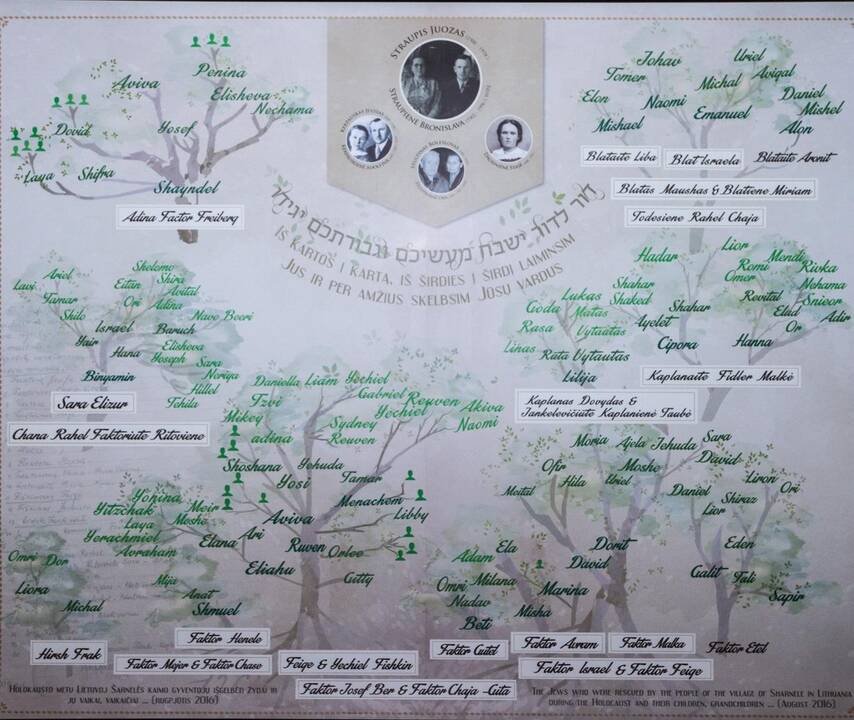 STRAUPIS JUOZAS
STRAUPIENĖ BRONISLAVA
דור לדור ישבח מעשיכם וגבורתכם יגידו
IŠ KARTOS Į KARTĄ, IŠ ŠIRDIES Į ŠIRDĮ LAIMINSIM
JUS IR PER AMŽIUS SKELBSIM JŪSŲ VARDUS
Penina
Aviva
Elisheva
Nechama
Dovid
Yosef
Laya
Shifra
Shayndel
Adina Factor Freiberg
Johav
Uriel
Tomer
Michal
Avigal
Elon
Naomi
Daniel
Emanuel
Mishel
Mishael
Alon
Blataite Liba
Blat Israela
Blataite Aronit
Blatas Maushas & Blatiene Miriam
Todesiene Rahel Chaja
Ariel
Shelomo
Lavi
Eitan
Shira
Avital
Tamar
Ori
Adina
Shilo
Nave Beeri
Israel
Baruch
Yair
Elisheva
Hana
Yoseph
Sara
Noriya
Binyamin
Hillel
Tehila
Sara Elizur
Chana Rahel Faktoriute Ritoviene
Hadar
Lior
Romi
Mendi
Rivka
Omer
Nehama
Shahar
Lukas
Shaked
Goda
Matas
Shahar
Revital
Snieor
Rasa
Vytautas
Ayelet
Elad
Adir
Or
Linas
Rūta
Vytautas
Cipora
Hanna
Lilija
Kaplanaitė Fidler Malkė
Kaplanas Dovydas &
Jankelevičiutė Kaplanienė Taubė
Daniella
Liam
Yechiel
Tzvi
Gabriel
Reuven
Mikey
Yechiel
Akiva
Sydney
Naomi
adina
Reuven
Shoshana
Yehuda
Yosi
Tamar
Menachem
Libby
Aviva
Ari
Elana
Ruven
Orlee
Eliahu
Gitty
Yonina
Yitzchak
Meir
Laya
Moshe
Yerachmiel
Avraham
Omri
Dor
Liora
Mija
Anat
Michal
Shmuel
Moria
Ajela
Jehuda
Sara
David
Ofir
Moshe
Hila
Uriel
Liron
Meital
Daniel
Ori
Shiraz
Lior
Ela
Dorit
Eden
Adam
David
Galit
Tali
Omri
Milana
Marina
Sapir
Nadav
Misha
Beti
Hirsh Frak
Faktor Henele
Faktor Mejer & Faktor Chase
Feige & Yechiel Fishkin
Faktor Josef Ber & Faktor Chaja -Gita
Faktor Gutel
Faktor Avram
Faktor Malka
Faktor Etel
Faktor Israel & Faktor Feige
HOLOKAUSTO METU LIETUVOJ ŠARNELĖS KAIMO GYVENTOJŲ IŠGELBĖTI ŽYDAI IR
JŲ VAIKAI, VAIKAIČIAI ... (RUGPJŪTIS 2016)
THE JEWS WHO WERE RESCUED BY THE PEOPLE OF THE VILLAGE OF SHARNELE IN LITHUANIA
DURING THE HOLOCAUST AND THEIR CHILDREN, GRANDCHILDREN ... (AUGUST 2016)